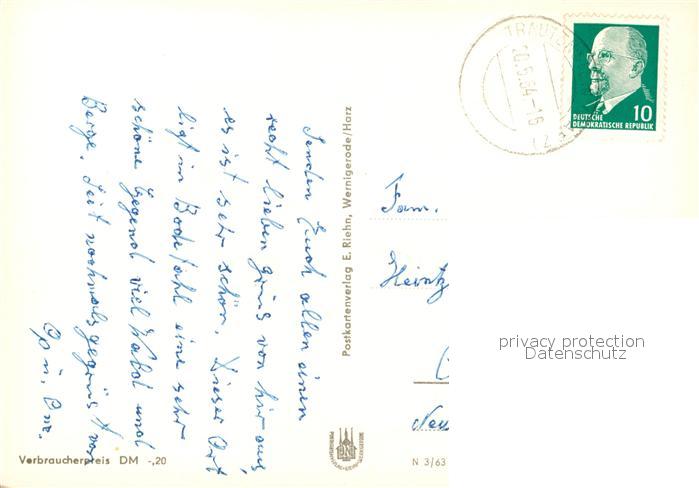 Senden Euch allen einen
recht lieben Gruß von hier aus,
es ist sehr schön. Dieser Ort
ligt in Bode eine sehr
schöne Gegend viel Wald und
Berge. Seit nochmals gegrüßt von
Op u. Om.
Postkartenverlag E. Riehn, Wernigerode/Harz
TRAUTE
20.6.64-16
DEUTSCHE
DEMOKRATISCHE REPUBLIK
10
Fam.
Heintz
Neu
privacy protection
Datenschutz
Verbraucherpreis DM -,20
N 3/63